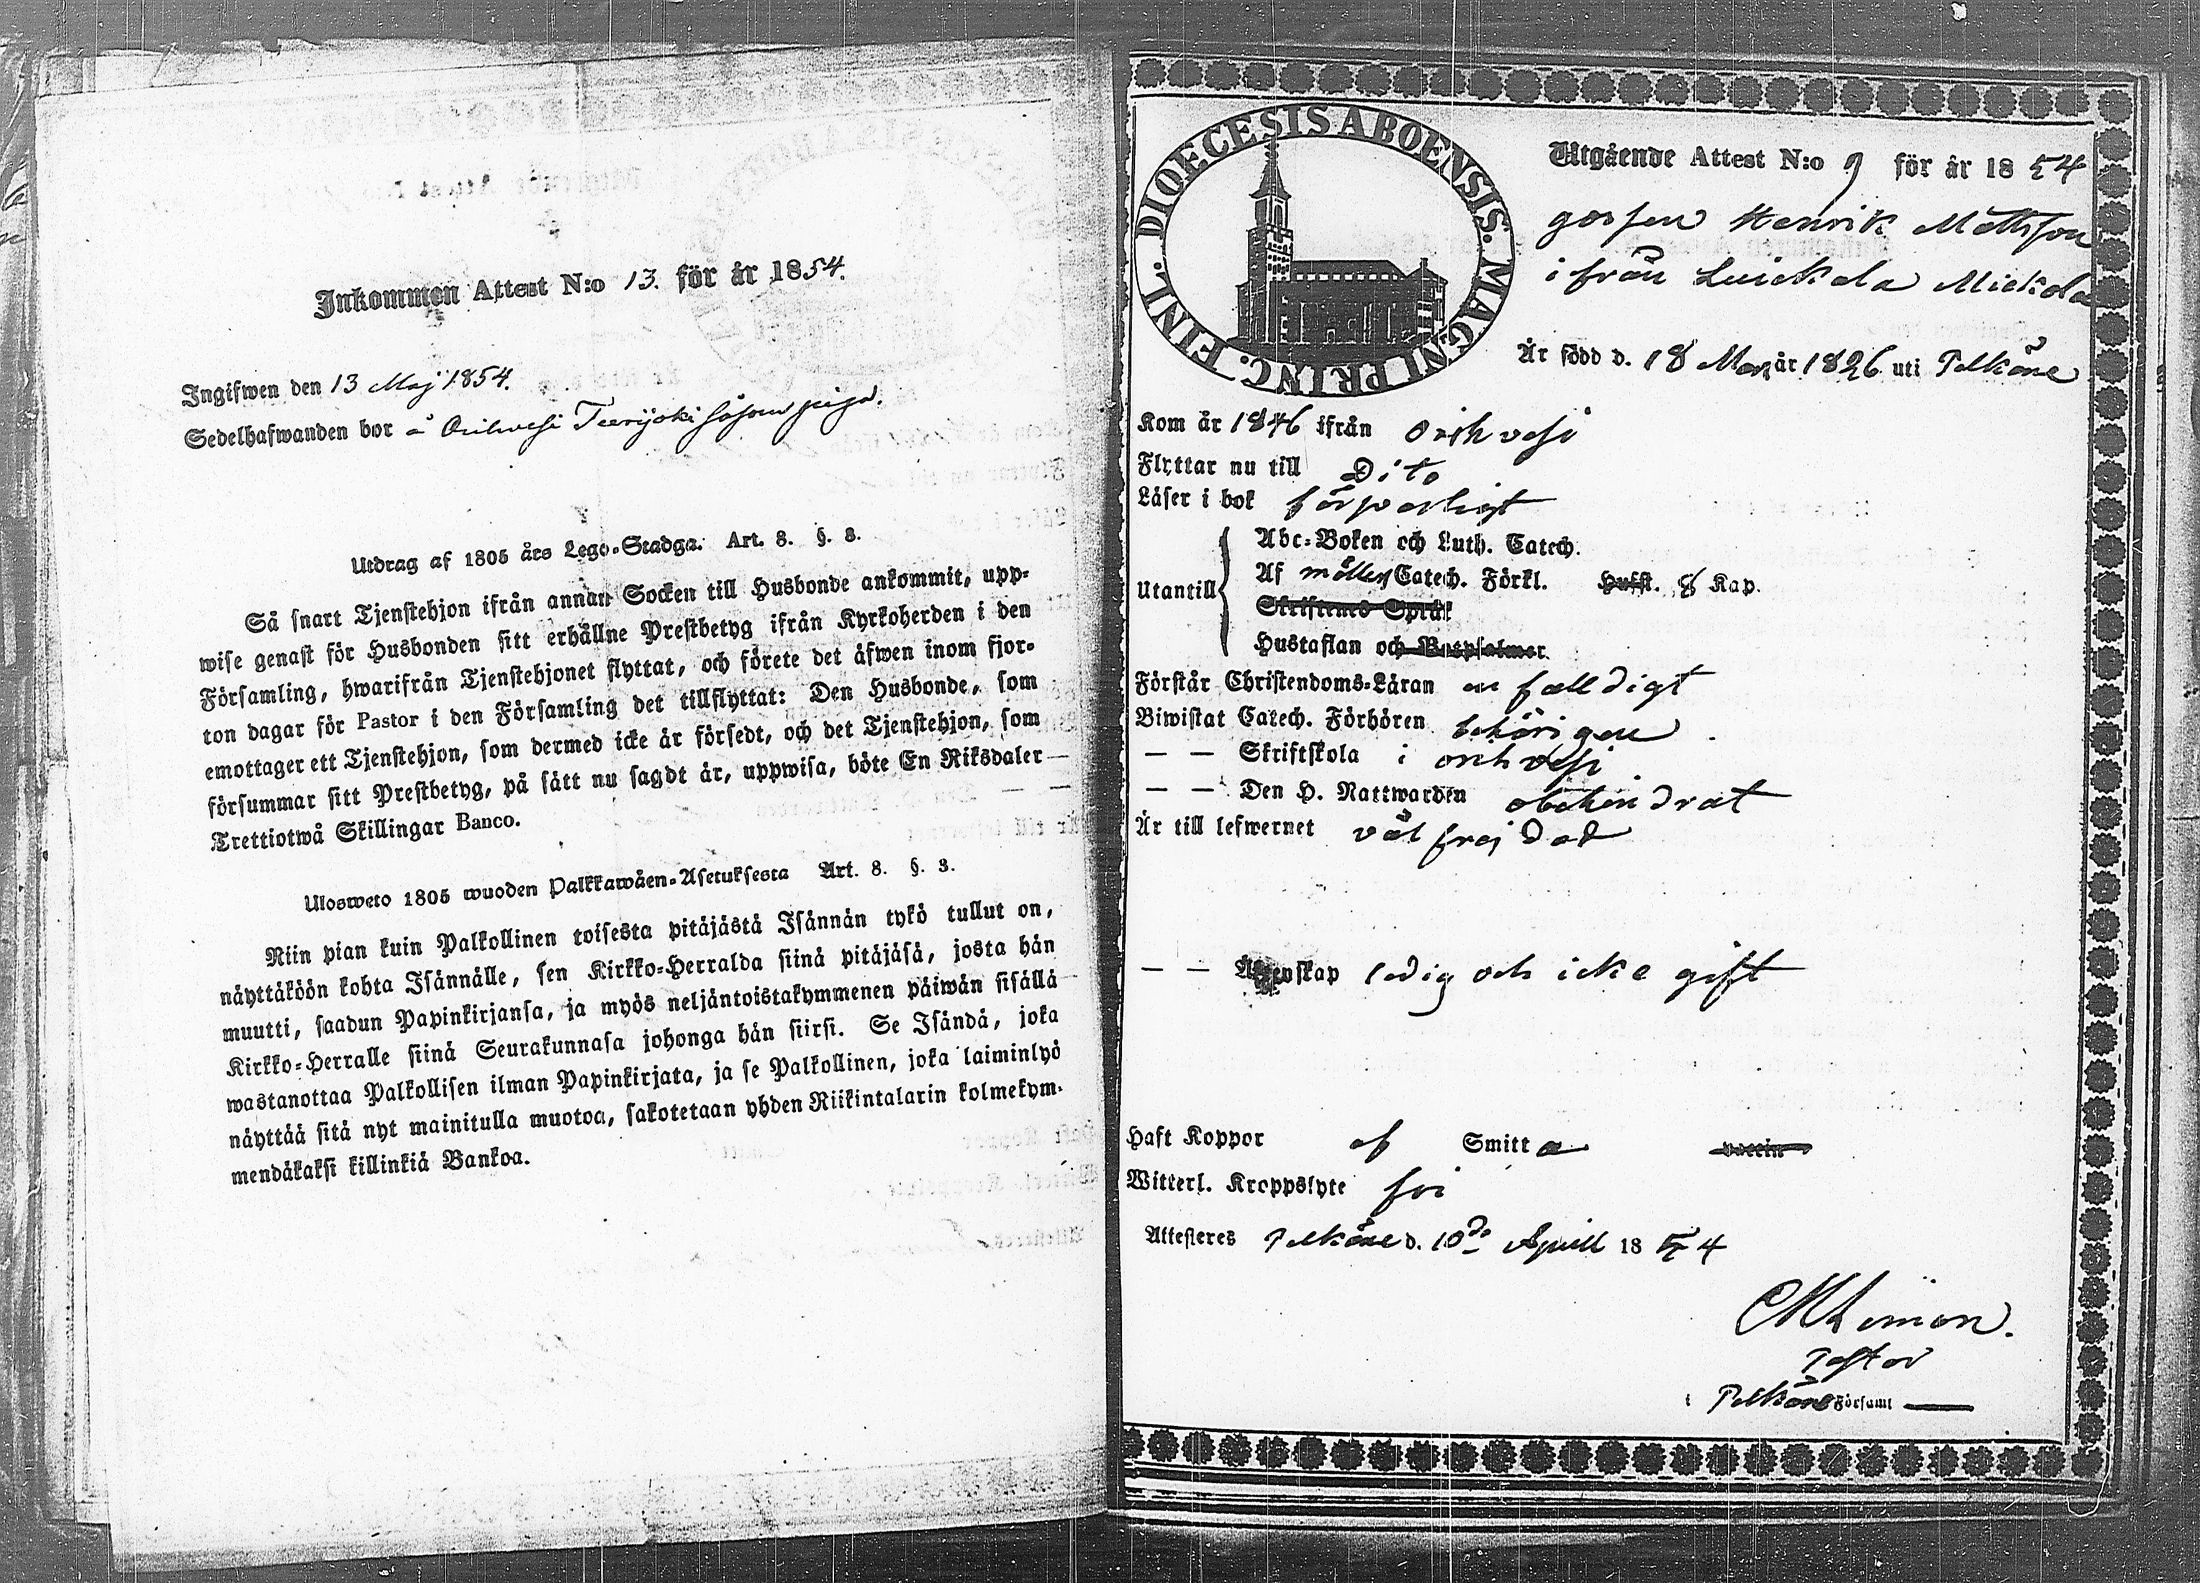 Inkommen Attest N:o 13. för år 1854.
Ingifwen den 13 Maj 1854.
Sedelhafwanden bor å Orihvesi Teerijoki såsom piga.
Utdrag af 1805 års Lego-Stadga. Art. 8. §. 3.
Så snart Tjenstehjon ifrån annan Socken till Husbonde ankommit, upp-
wise genast för Husbonden sitt erhållne Prestbetyg ifrån Kyrkoherden i den
Församling, hwarifrån Tjenstehjonet flyttat, och förete det äfwen inom fjor-
ton dagar för Pastor i den Församling det tillflyttat: Den Husbonde, som
emottager ett Tjenstehjon, som dermed icke är försedt, och det Tjenstehjon, som
försummar sitt Prestbetyg, på sätt nu sagdt är, uppwisa, böte En Riksdaler
Trettiotwå Skillingar Banco.
Ulosweto 1805 wuoden Palkkawäen-Asetuksesta Art. 8. §. 3.
Niin pian kuin Palkollinen toisesta pitäjästä Isännän tykö tullut on,
näyttäköön kohta Isännälle, sen Kirkko-Herralda siinä pitäjäsä, josta hän
muutti, saadun Papinkirjansa, ja myös neljäntoistakymmenen päiwän sisällä
Kirkko-Herralle siinä Seurakunnasa johonga hän siirsi. Se Isändä, joka
wastanottaa Palkollisen ilman Papinkirjata, ja se Palkollinen, joka laiminlyö
näyttää sitä nyt mainitulla muotoa, sakotetaan yhden Riikintalarin kolmekym-
mendäkaksi killinkiä Bankoa.
DIOECESIS ABOENSIS. MAGNI PRINC. FINL.
Utgående Attest N:o 9 för år 1854
gossen Henrik Mattsson
ifrån Luickala Mickola
Är född d. 18 Mars år 1826 uti Pelkäne
Kom år 1846 ifrån Orihvesi
Flyttar nu till Dito
Läser i bok försvarligt
Utantill
Abc-Boken och Luth. Catech.
Af möllers Catech. Förkl. Hufst. 8 Kap.
Skriftenes Språk
Hustaflan och Botpsalmer
Förstår Christendoms-Läran enfalldigt
Biwistat Catech. Förhören behörigen
— — Skriftskola i orihvesi
— — Den H. Nattwarden obehindrat
Är till lefwernet väl frejdad
— — Ägtenskap ledig och icke gift
Haft Koppor af Smitta vaccin
Witterl. Kroppslyte fri
Attesteras Pelkäne d. 10de Aprill 1854
Pastor
i Pelkäne Församl